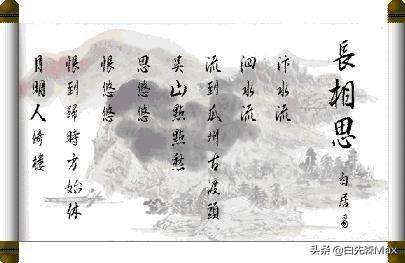 長相思
白居易
汴水流
泗水流
流到瓜州古渡頭
吴山點點愁
思悠悠
恨悠悠
恨到歸時方始休
月明人倚樓
头条 @白先森Max